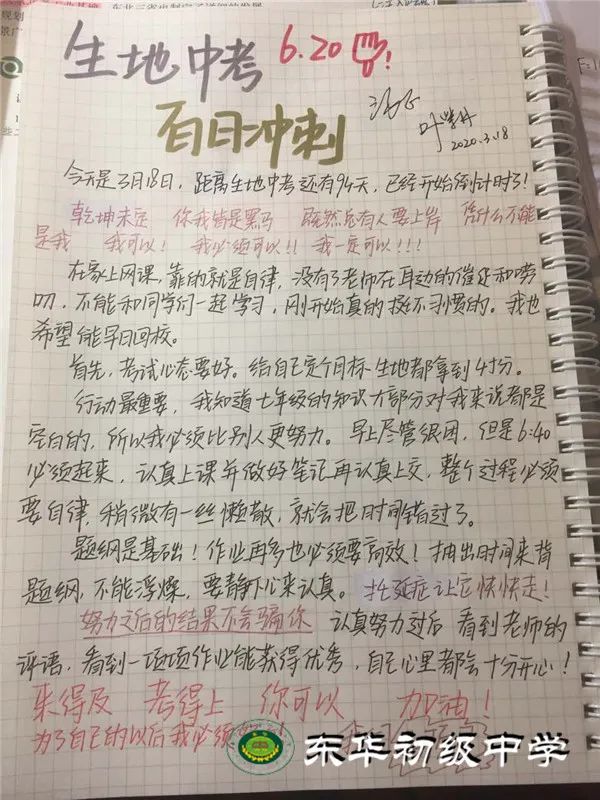 生地中考 6.20!
百日冲刺
2020.3.18
今天是3月18日，距离生地中考还有94天，已经开始倒计时了！
乾坤未定 你我皆是黑马 既然总有人要上岸 凭什么不能
是我 我可以！ 我必须可以!! 我一定可以!!!
在家上网课，靠的就是自律，没有了老师在耳边的催促和唠
叨，不能和同学们一起学习，刚开始真的挺不习惯的。我也
希望能早日回校。
首先，考试心态要好。给自己定个目标 生地都拿到4分。
行动最重要，我知道七年级的知识大部分对我来说都是
空白的，所以我必须比别人更努力。早上尽管很困，但是6:40
必须起来，认真上课并做好笔记再认真上交，整个过程必须
要自律，稍微有一丝懒散，就会把时间错过了。
题纲是基础！作业再多也必须要高效！抽出时间来背
题纲，不能浮燥，要静下心来认真。拖延症让它快快走！
努力之后的结果不会骗你 认真努力过后 看到老师的
评语，看到一项项作业能获得优秀，自己心里都会十分开心！
来得及 考得上 你可以 加油！
为了自己的以后我必须
东华初级中学